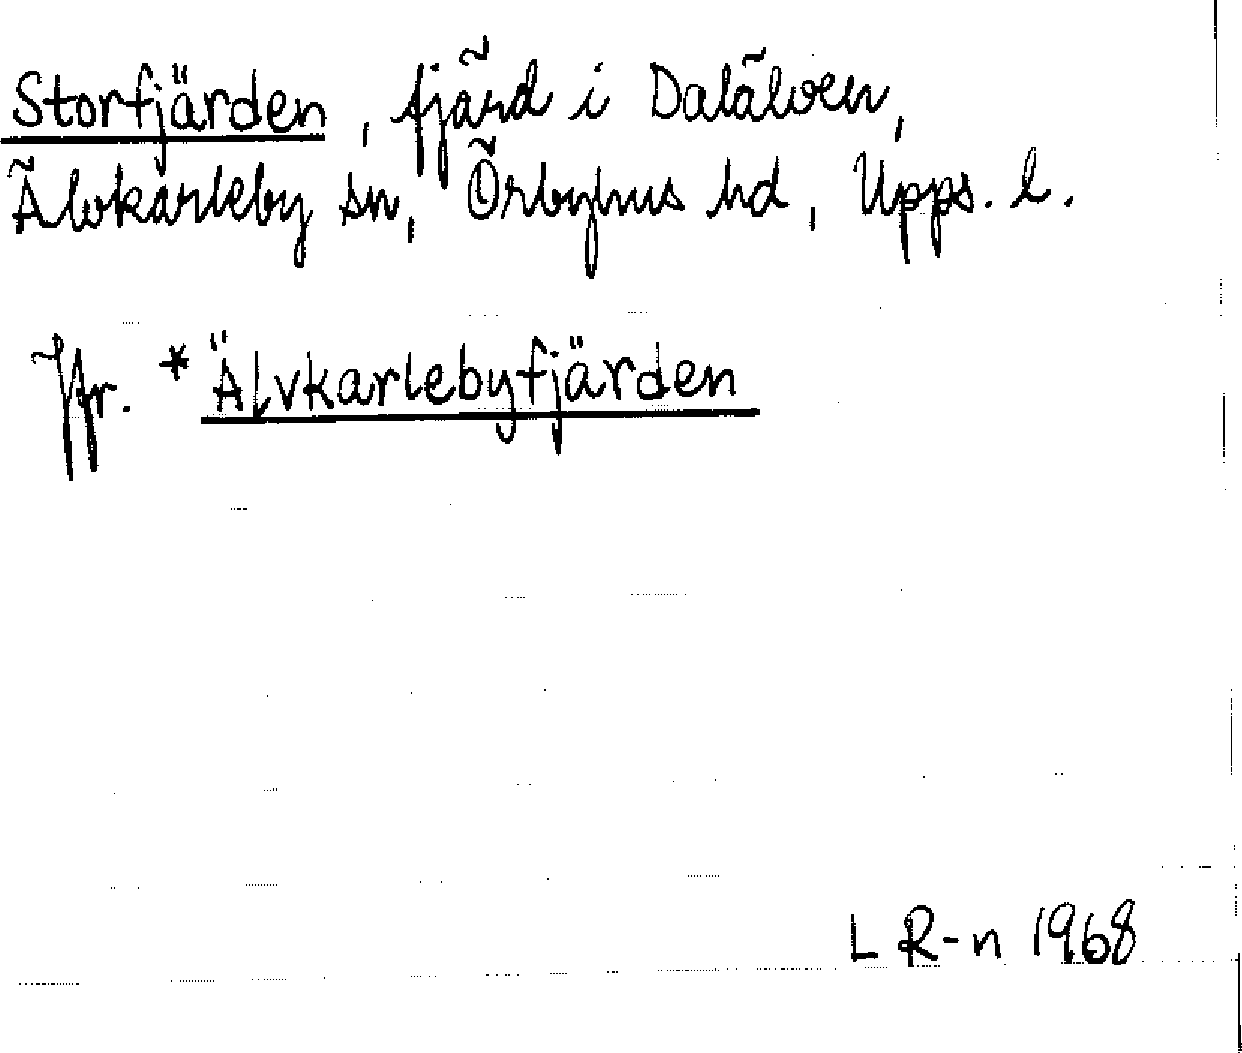 Storfjärden, fjärd i Dalälven,
Älvkarleby sn, Örbyhus hd, Upps. l.
Jfr. *Älvkarlebyfjärden
L R-n 1968